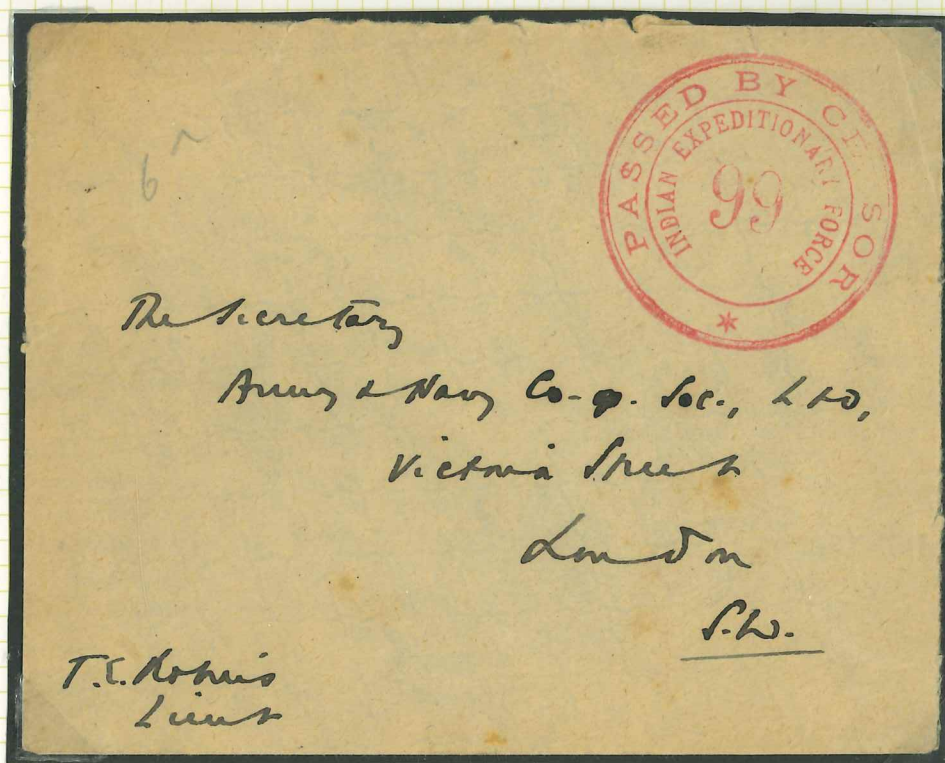 PASSED BY CENSOR
INDIAN EXPEDITIONARY FORCE
99
6
The Secretary
Army & Navy Co-op. Soc., LTD,
Victoria Street
London
S.W.
T.E.
Lieut